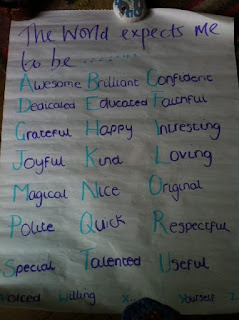 The World expects me
to be ........
Awesome Brilliant Confident
Dedicated Educated Faithful
Grateful Happy Intresting
Joyful Kind Loving
Magical Nice Original
Polite Quick Respectful
Special Talented Useful
Voiced Willing X.. Yourself Z.